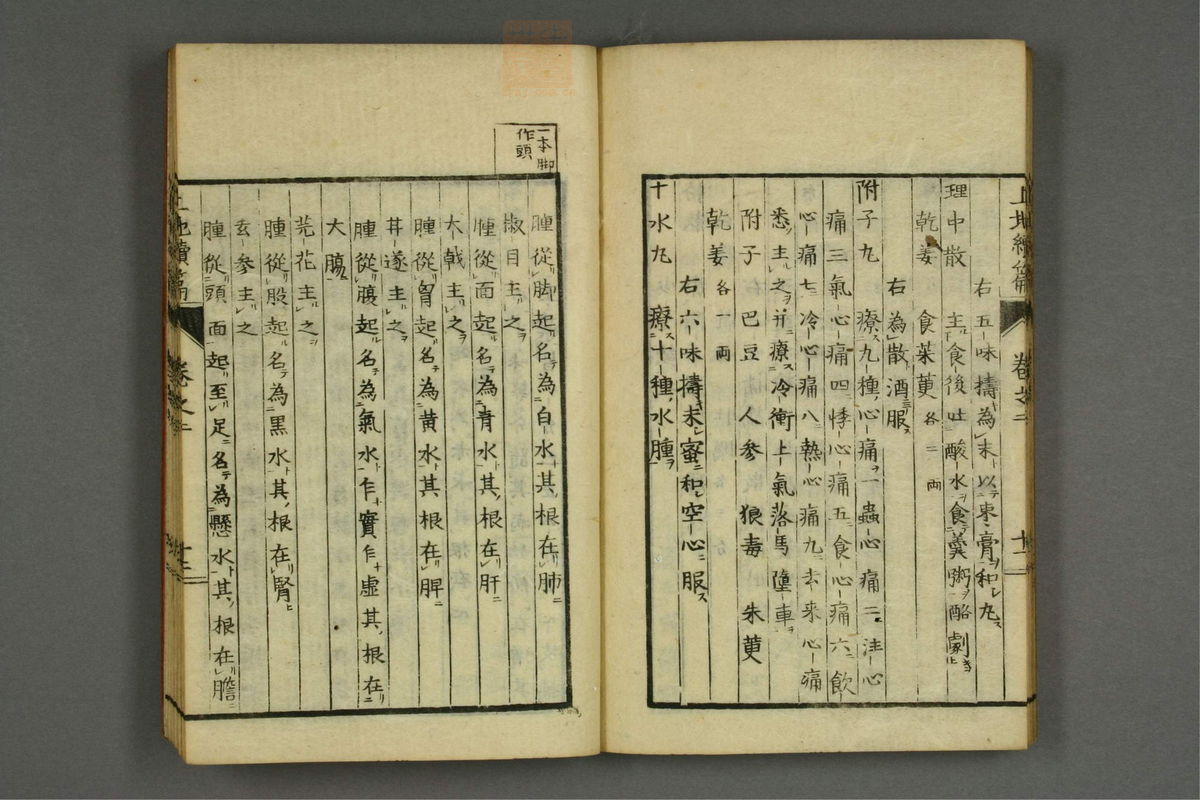 右五味擣為末以棗膏和丸
理中散主食後吐酸水食羹粥酪劇
乾姜食茱萸各二両
右為散酒服
附子丸療九種心痛一蟲心痛二注心
痛三氣心痛四悸心痛五食心痛六飲
心痛七冷心痛八熱心痛九去来心痛
悉主之并療冷衝上氣落馬墮車
附子巴豆人參狼毒朱萸
乾姜各一両
右六味擣末蜜和空心服
十水丸療十種水腫
卷之二
十二
一本脚
作頭
腫從脚起名為白水其根在肺
椒目主之
腫從面起名為青水其根在肝
大戟主之
腫從胷起名為黃水其根在脾
甘遂主之
腫從腹起名為氣水乍實乍虛其根在
大腸
芫花主之
腫從股起名為黒水其根在腎
玄參主之
腫從頭面起至足名為懸水其根在膽
卷之二